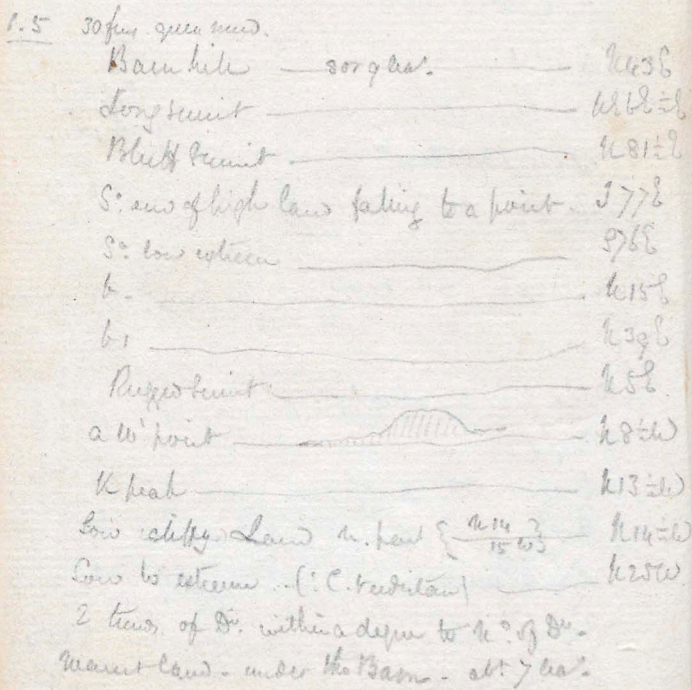 1.5 30 fms green mud.
Barn hill 8 or 9 lea.. N43E
Long sumit N66E½E
Bluff Sumit N81½E
So. end of high land falling to a point. S77E
So. low extreem S76E
b. N15E
b1 N39E
Rugged Sumit N5E
a W. point N8½W
K peak N13½W
Low cliffy Land n. part { N14 / 15 W } N14½W
Low to extreem (: C. ) N25W
2 of Do. within a degree to No. of Do.
nearest land. under the Barn. abt. 7 lea.